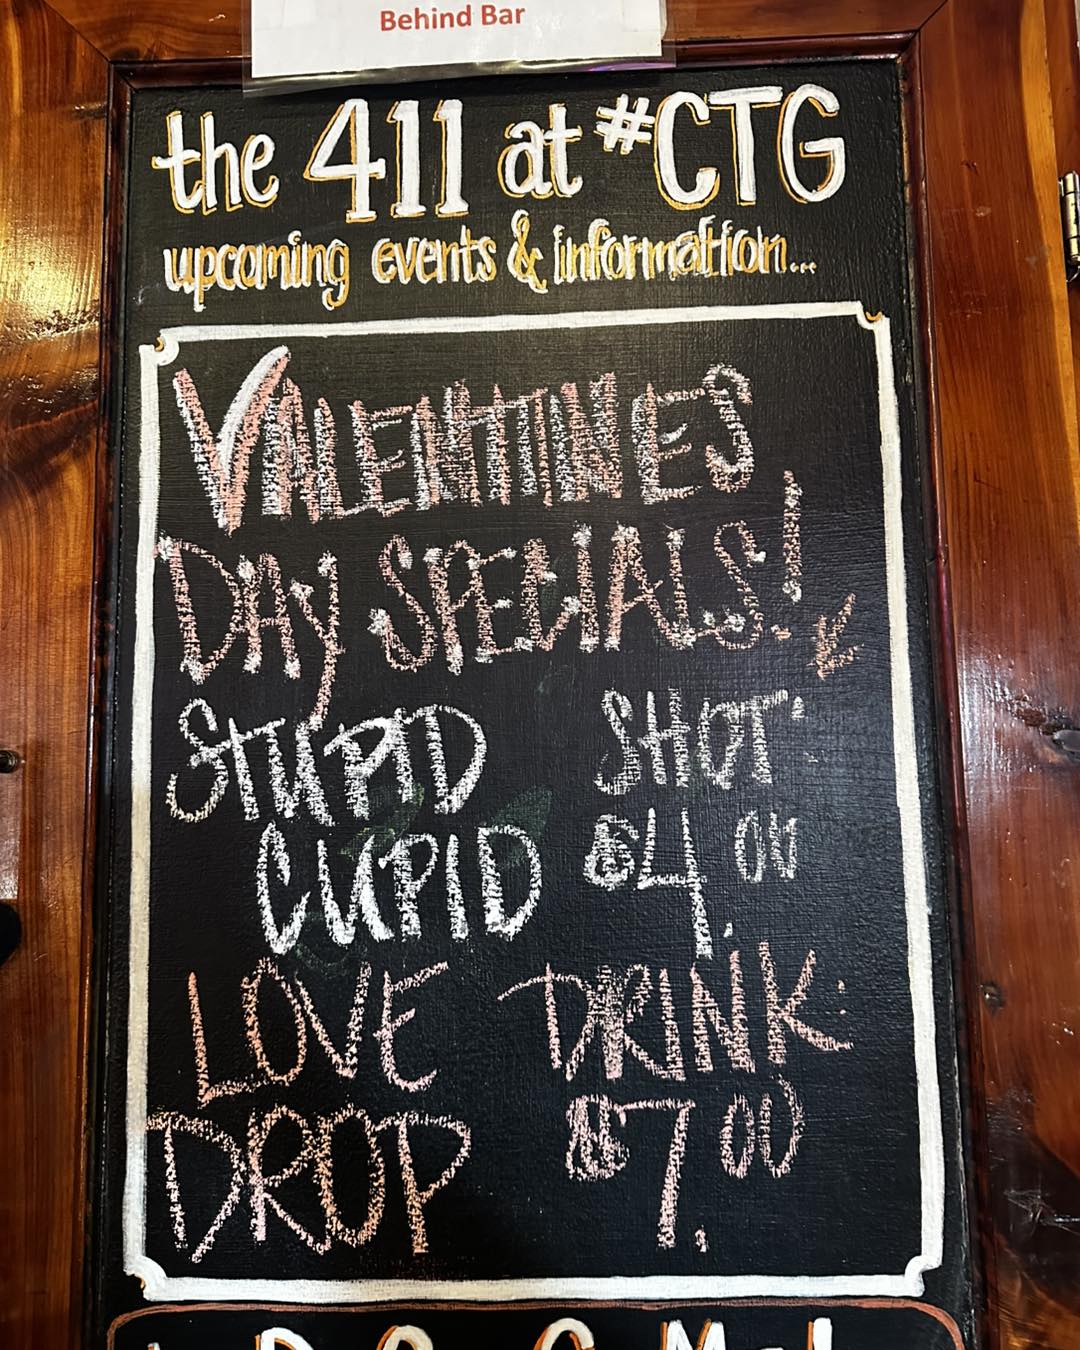 Behind Bar
the 411 at #CTG
upcoming events & information...
VALENTINE'S
DAY SPECIALS!
STUPID SHOT:
CUPID $4.00
LOVE DRINK:
DROP $7.00